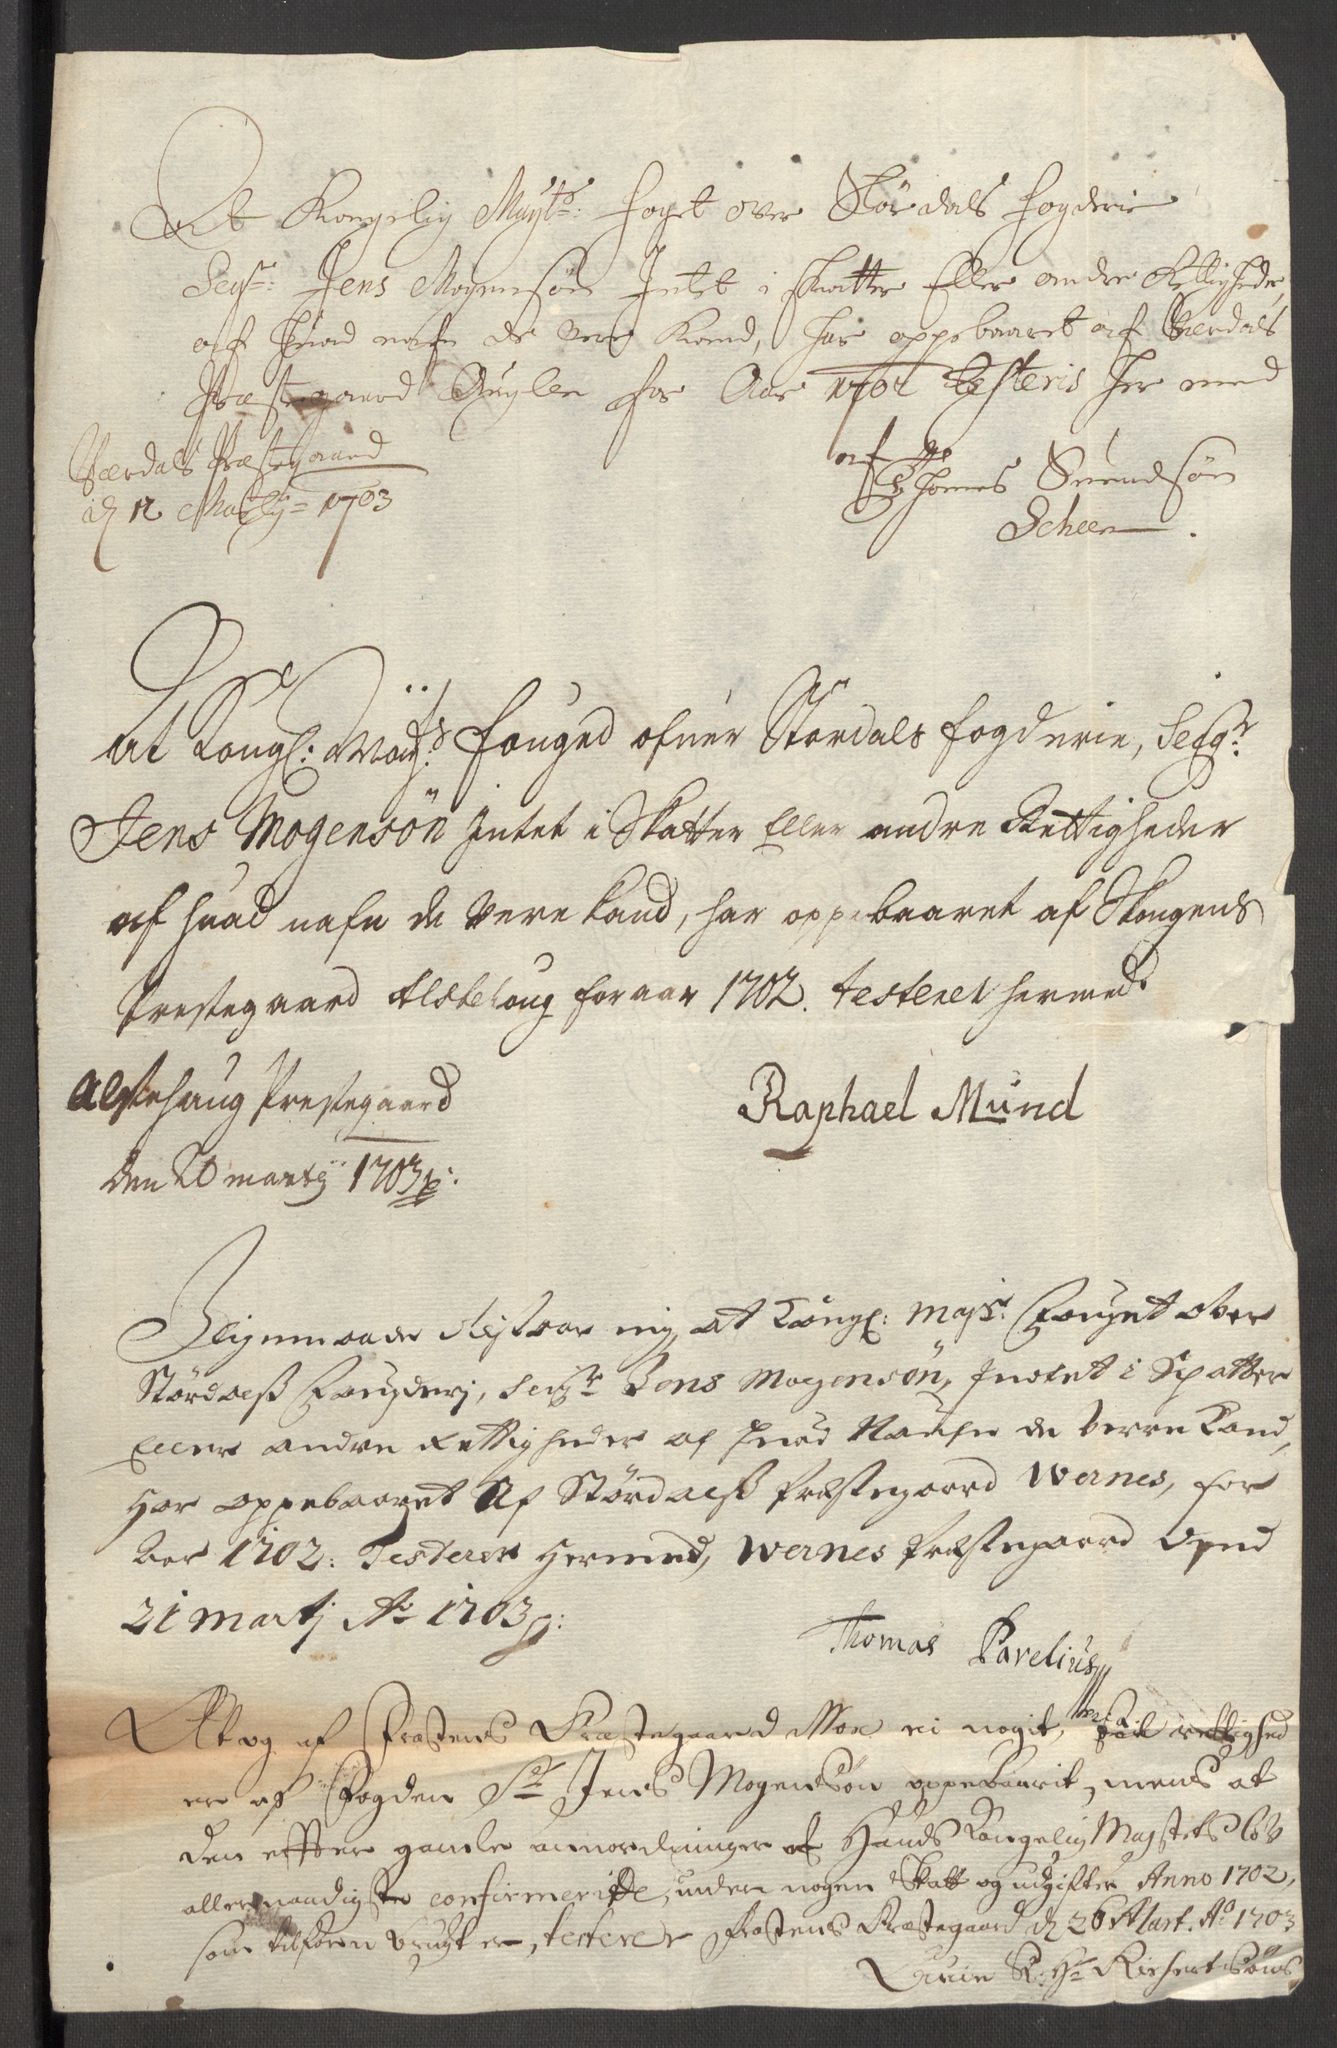 At Kongelig Mayts: foget over Størdals fogderie
Seigr: Jens Mogensøn Intet i skatter Eller andre Rettigheder,
af huad nafn de vere kand, har oppebaaret af Værdals
Præstegaard Auglen for Aar 1702 testeris her med
af
Værdals Præstegaard
d 12 Martij = 1703
Thomes Suendsøn
Scheen.
At Kongl: Mayts: fouged ofuer Størdals fogderie, Seigr:
Jens Mogensøn Intet i Skatter Eller andre Rettigheder
af huad nafn de Vere kand, har oppebaaret af Skougens
Prestegaard Alstehoug for aar 1702. testerer hermed
Alstehaug Prestegaard
Den 20 martij 1703
Raphael Mund
Ligemaade at Kongl: Majs: Fouget ober
Størdalß Fougderj, Seigr Jens Mogensøn, Indtet i Skatter
Eller andre rettigheder af huad Naufn de verre kand,
Har oppebaaret Af Størdalß Præstegaard Wernes, for
Aar 1702: Testerer Hermed, Wernes Præstegaard Dend
21 Martj Ao 1703
Thomas Parelius
At og af Frostens Præstegaard Moe ei nogit, rettighed
er af Fogden Sr Jens Mogensøn oppebaarit, mens at
den effter gamle anordninger af Hands Kongelig Majstets
allernaadigste confirmeritte, uden nogen Skatt og udgifter Anno 1702,
som tilforn brugt er, testerer Frostens Præstegaard d 26 Mart. Ao 1703
Richertsøns